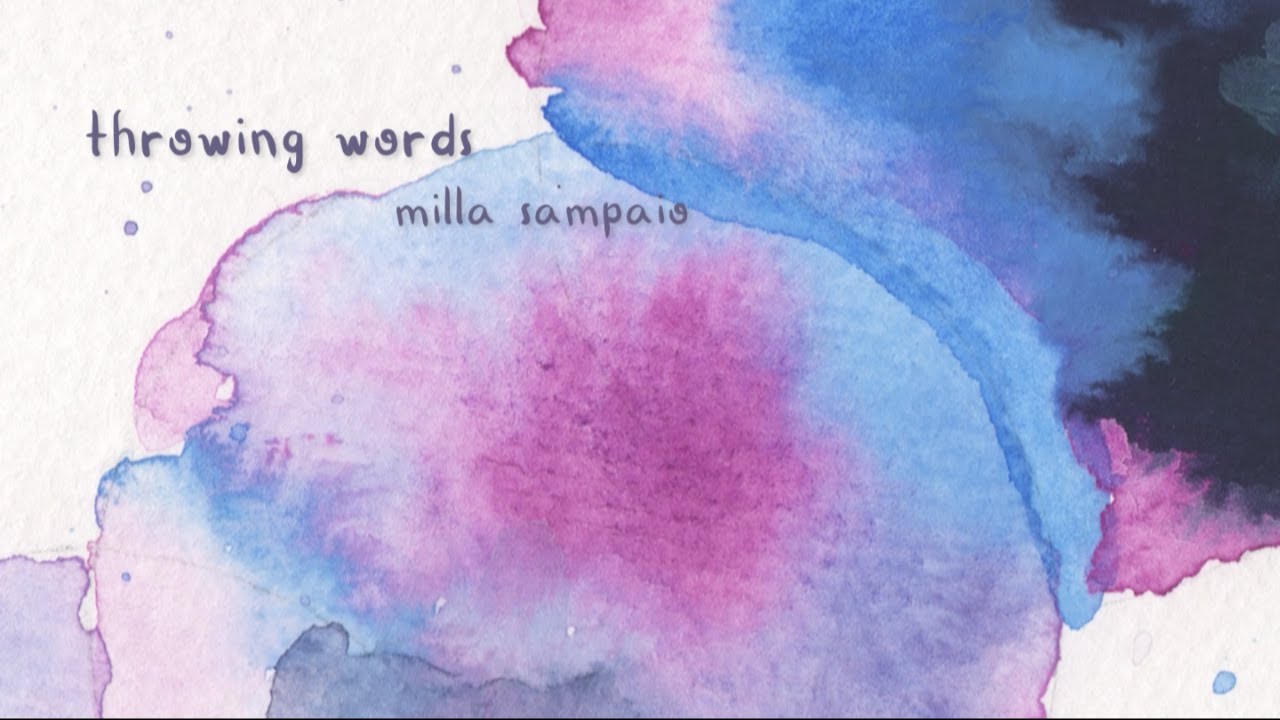 throwing words
milla sampaio